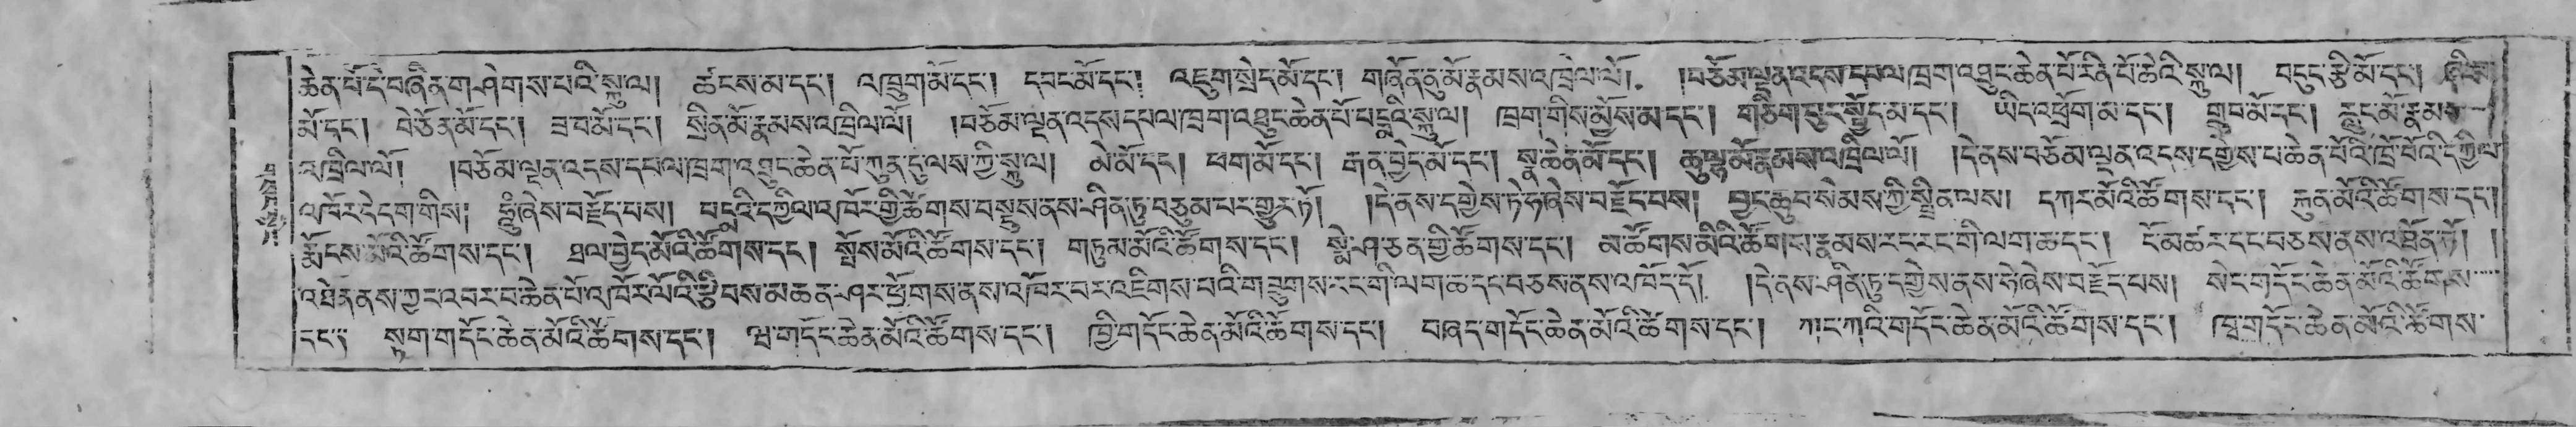 ཆེན་པོ་དེ་བཞིན་གཤེགས་པའི་སྐུ་ལ། ཚངས་མ་དང་། འཁྲུག་མོ་དང་། དབང་མོ་དང་། འཇུག་སྲེད་མོ་དང་། གཞོན་ནུ་མོ་རྣམས་འཁྲིལ་ལོ། །བཅོམ་ལྡན་འདས་དཔལ་ཁྲག་འཐུང་ཆེན་པོ་རིན་པོ་ཆེའི་སྐུ་ལ། བདུད་རྩི་མོ་དང་། ཞི་བ
མོ་དང་། བེ་ཅོན་མོ་དང་། ཟ་བ་མོ་དང་། སྲིན་མོ་རྣམས་འཁྲིལ་ལོ། །བཅོམ་ལྡན་འདས་དཔལ་ཁྲག་འཐུང་ཆེན་པོ་པདྨའི་སྐུ་ལ། ཁྲག་གིས་མྱོས་མ་དང་། གཅིག་པུར་སྤྱོད་མ་དང་། ཡིད་འཕྲོག་མ་དང་། གྲུབ་མོ་དང་། རླུང་མོ་རྣམས
འཁྲིལ་ལོ། །བཅོམ་ལྡན་འདས་དཔལ་ཁྲག་འཐུང་ཆེན་པོ་ཀུན་དུ་ལས་ཀྱི་སྐུ་ལ། མེ་མོ་དང་། ཕག་མོ་དང་། རྒན་བྱེད་མོ་དང་། སྣ་ཆེན་མོ་དང་། ཆུ་ལྷ་མོ་རྣམས་འཁྲིལ་ལོ། །དེ་ནས་བཅོམ་ལྡན་འདས་དགྱེས་པ་ཆེན་པོའི་ཁྲོ་བོའི་དཀྱིལ
འཁོར་དེ་དག་གིས། ཧཱུཾ་ཞེས་བརྗོད་པས། པདྨའི་དཀྱིལ་འཁོར་གྱི་ཚོགས་བསྡུས་ནས་ཤིན་ཏུ་བཅུམ་པར་གྱུར་ཏོ། །དེ་ནས་དགྱེས་ཏེ་ཧེ་ཞེས་བརྗོད་པས། བྱང་ཆུབ་སེམས་ཀྱི་སྤྲིན་ལས། དཀར་མོའི་ཚོགས་དང་། རྐུན་མོའི་ཚོགས་དང་།
རྨོངས་མོའི་ཚོགས་དང་། ཐལ་བྱེད་མོའི་ཚོགས་དང་། སྤོས་མོའི་ཚོགས་དང་། གཏུམ་མོའི་ཚོགས་དང་། སྨེ་ཤ་ཅན་གྱི་ཚོགས་དང་། མ་ཚོགས་མིའི་ཚོགས་རྣམས་རང་རང་གི་ལག་ཆ་དང་། ངོ་མཚར་དང་བཅས་ནས་འཐོན་ཏོ། །
འཐོན་ནས་ཀྱང་འབར་བ་ཆེན་པོ་འཁོར་ལོའི་རྩིབས་མཆན་ཤར་ཕྱོགས་ནས་འཁོར་བར་འཇིགས་པའི་གཟུགས་རང་གི་ལག་ཆ་དང་བཅས་ནས་འཁོད་དོ། །དེ་ནས་ཤིན་ཏུ་དགྱེས་ནས་ཧེ་ཞེས་བརྗོད་པས། སེང་གདོང་ཆེན་མོའི་ཚོགས
དང་། སྟག་གདོང་ཆེན་མོའི་ཚོགས་དང་། ཝ་གདོང་ཆེན་མོའི་ཚོགས་དང་། ཁྱི་གདོང་ཆེན་མོའི་ཚོགས་དང་། བཞད་གདོང་ཆེན་མོའི་ཚོགས་དང་། ཀང་ཀའི་གདོང་ཆེན་མོའི་ཚོགས་དང་། ཁྭ་གདོང་ཆེན་མོའི་ཚོགས་